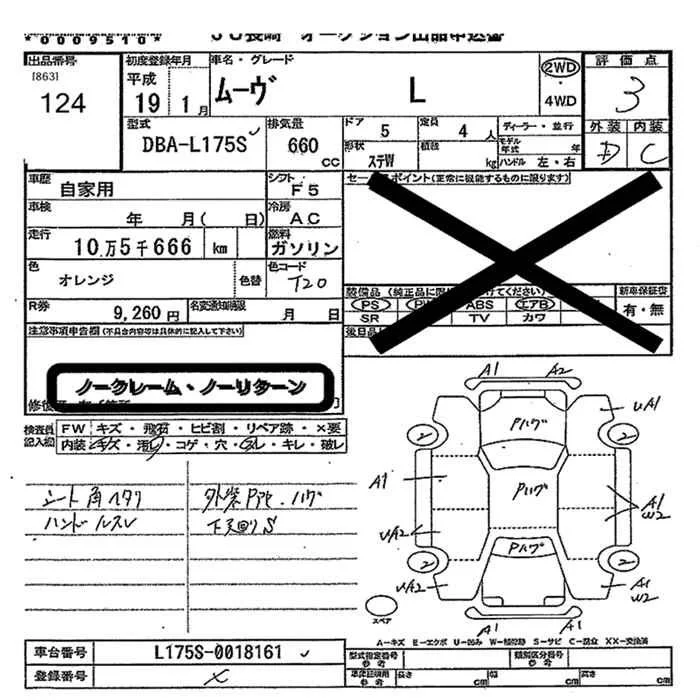 *0009510*
JU長崎 オークション出品申込書
出品番号
[863]
124
初度登録年月
平成
19 1月
車名・グレード
ムーヴ L
2WD
・
4WD
評価点
3
外装 内装
D C
型式
DBA-L175S
排気量
660
CC
ドア
5
定員
4人
形状
ステW
積載
kg
ディーラー・並行
モデル
年式 年
ハンドル 左・右
車歴
自家用
シフト
F5
車検
年 月( 日)
冷房
AC
走行
10万5千666 km
燃料
ガソリン
色
オレンジ
色替
色コード
T20
R券
9,260円
名変通知期限
月 日
セールスポイント(正常に機能するものに限ります)
PS
ABS
エアB
SR
TV
カワ
新車保証書
有・無
注意事項申告欄(不具合内容等は具体的に記入して下さい)
ノークレーム・ノーリターン
検査員
記入欄
FW キズ・飛石・ヒビ割・リペア跡・×要
内装 キズ・汚レ・コゲ・穴・スレ・キレ・破レ
シート角ヘタリ
ハンドルスレ
外装Pアセ・ハゲ
下回りS
A1 A2
Pハゲ
UA1
2
2
A1
Pハゲ
A1
W2
UA2
Pハゲ
2
2
UA2
A1
W2
A1 A1
スペア
A-キズ E-エクボ U-凹み W-補修跡 S-サビ C-腐食 XX-交換済
車台番号
L175S-0018161
登録番号
×
型式指定番号
参考
類別区分番号
参考
車庫証明用
参考
長さ cm
幅 cm
高さ cm